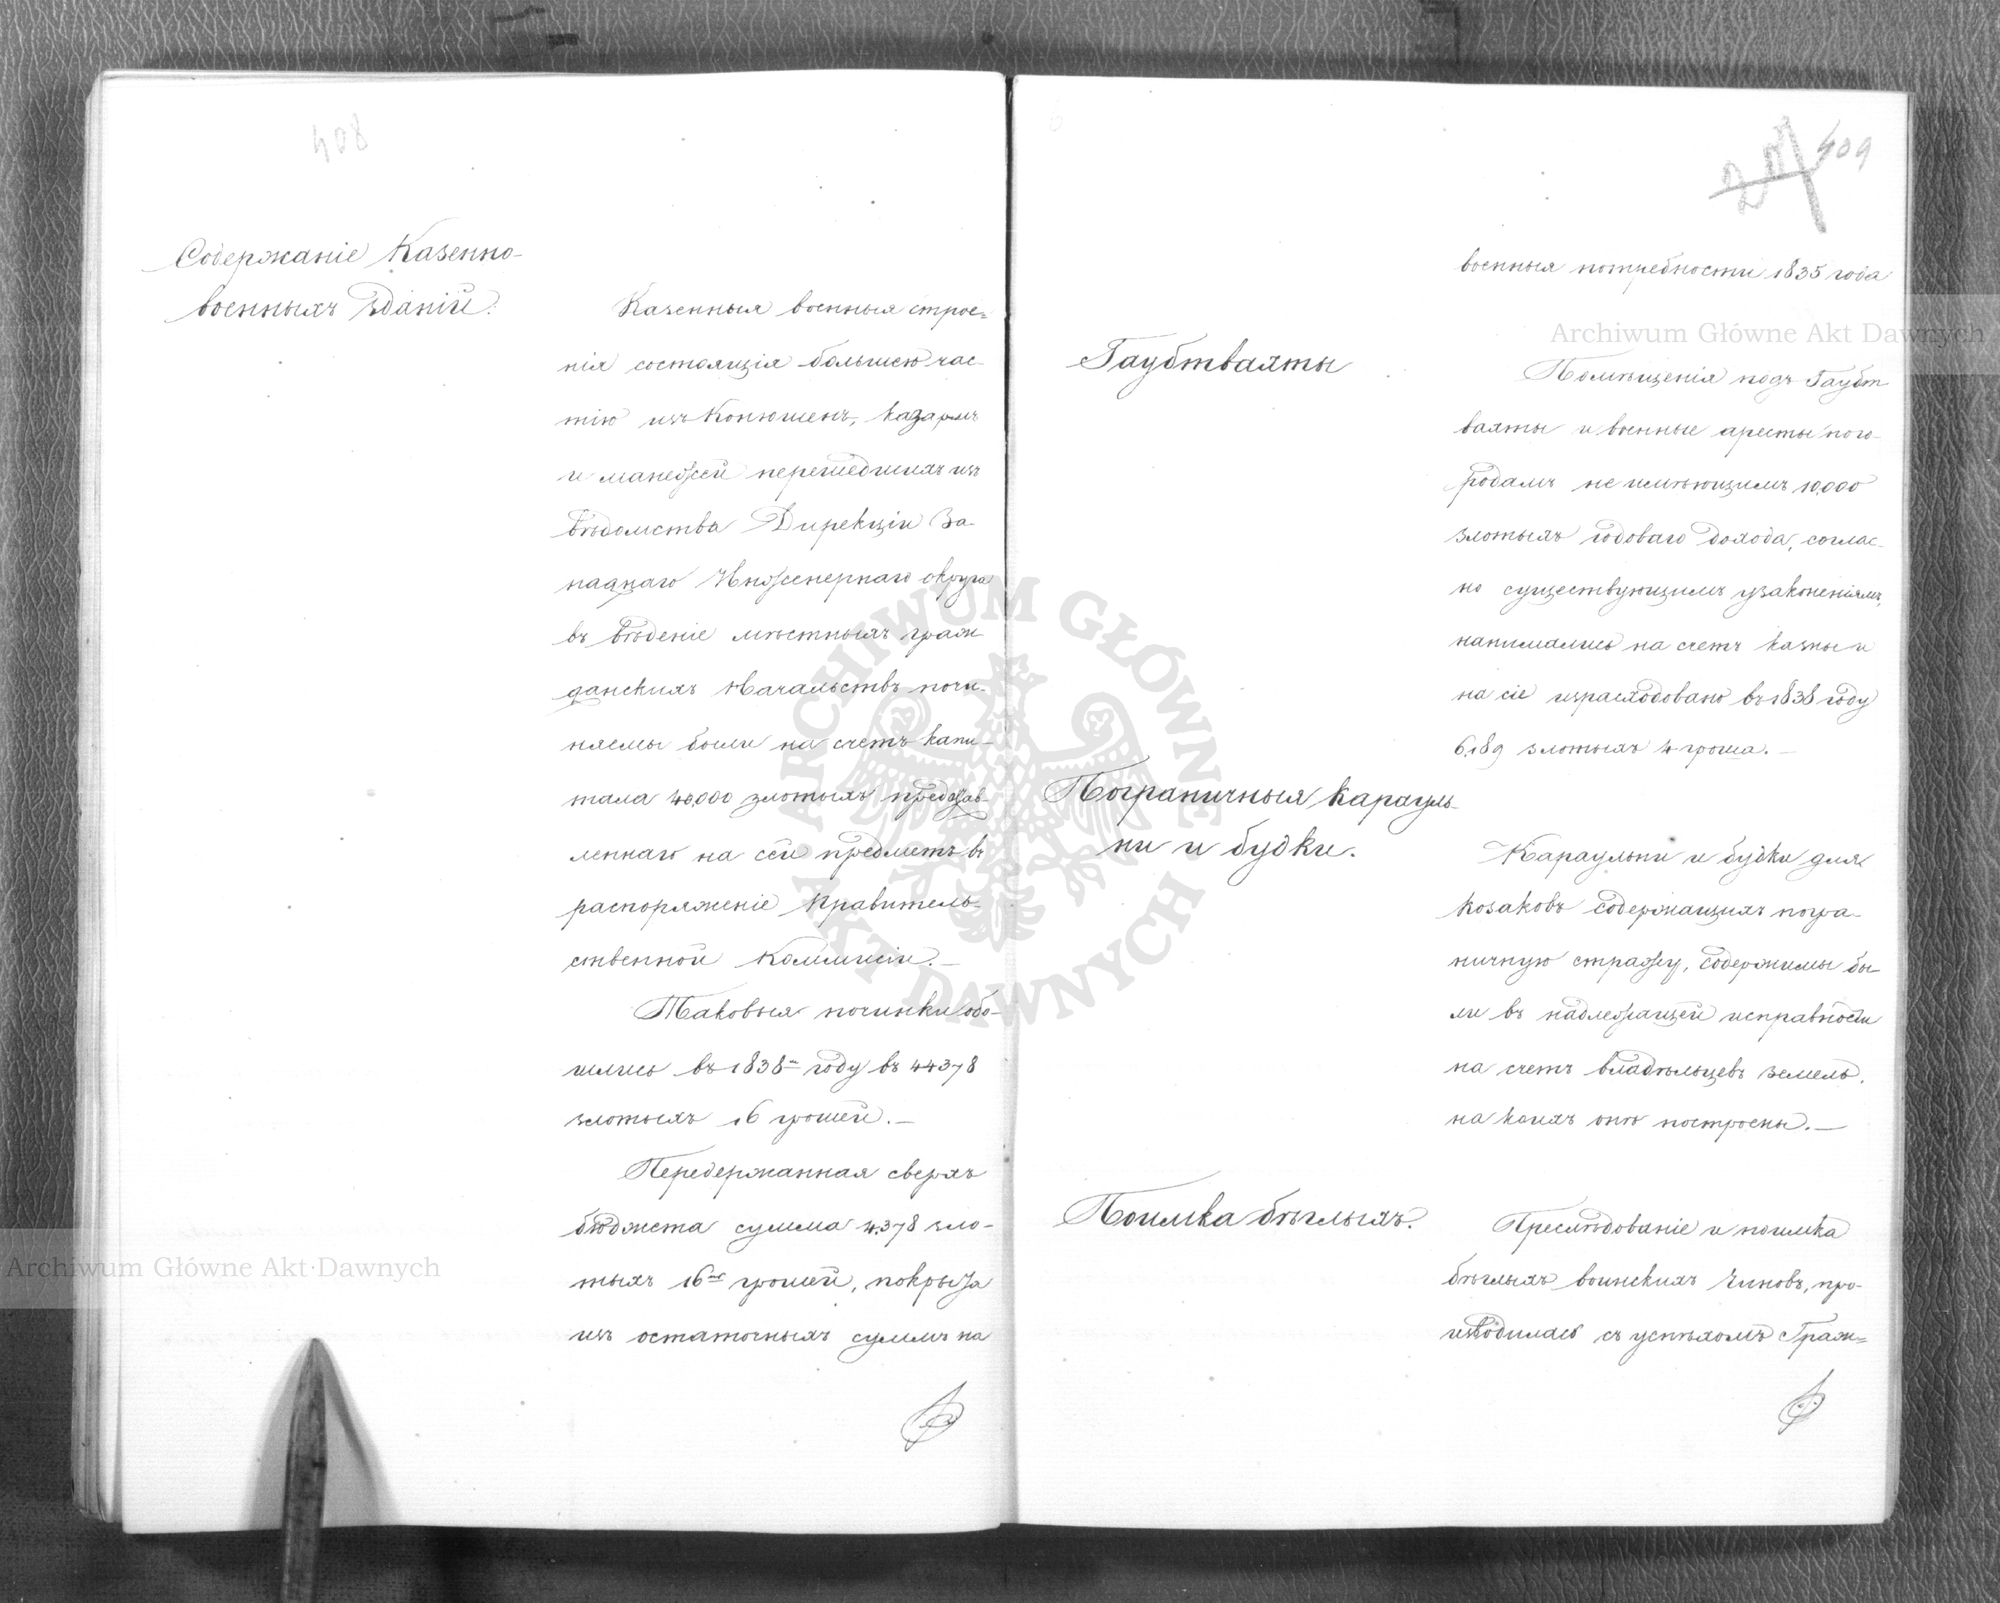 408
Содержаніе Казенно-
военныхъ зданій.
Казенныя военныя строе=
нія состоящія большею час-
тію изъ Конюшенъ, казармъ
и манежей перешедшихъ изъ
вѣдомства Дирекціи За-
паднаго Инженернаго округа
въ вѣденіе мѣстныхъ граж
данскихъ Начальствъ почи-
няемы были на счетъ капи-
тала 40,000 злотыхъ предостав-
леннаго на сей предметъ въ
распоряженіе Правитель-
ственной Коммисіи.—
Таковыя починки обо-
шлись въ 1838м году въ 44378
злотыхъ 16 грошей.—
Передержанная сверхъ
бюджета сумма 4,378 зло-
тыхъ 16ть грошей, покрыта
изъ остаточныхъ суммъ на
409
военныя потребности 1835 года
Гауптвахты
Помѣщенія подъ Гаупт
вахты и военные аресты по го-
родамъ не имѣющимъ 10,000
злотыхъ годоваго дохода, соглас-
но существующимъ узаконеніямъ,
нанимались на счетъ казны и
на сіе израсходовано въ 1838 году
6,189 злотыхъ 4 гроша.—
Пограничныя карауль-
ни и будки.
Караульни и будки для
козаковъ содержащихъ погра-
ничную стражу, содержимы бы-
ли въ надлежащей исправности
на счетъ владѣльцевъ земель,
на коихъ онѣ построены.—
Поимка бѣглыхъ.
Преслѣдованіе и поимка
бѣглыхъ воинскихъ чиновъ, про-
изводилась съ успѣхомъ Граж=
Archiwum Główne Akt Dawnych
Archiwum Główne Akt Dawnych
ARCHIWUM GŁÓWNE
AKT DAWNYCH